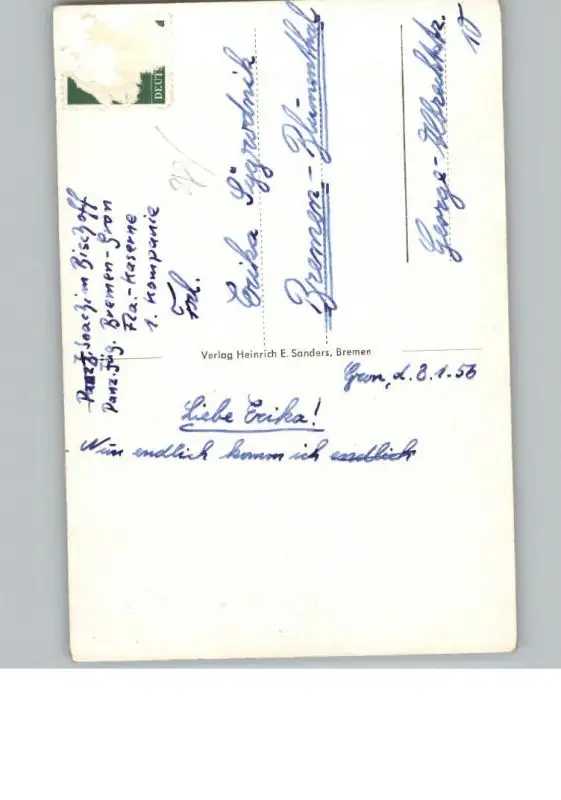 DEUTS
Joachim Bischoff
Panz.Jäg. Bremen-Gron
Fla.-Kaserne
1. Kompanie
Frl.
Erika
Bremen-Blumenthal
George-Albrechtstr.
10
Verlag Heinrich E. Sanders, Bremen
Gron, d. 8.1.56
Liebe Erika!
Nun endlich komm ich endlich